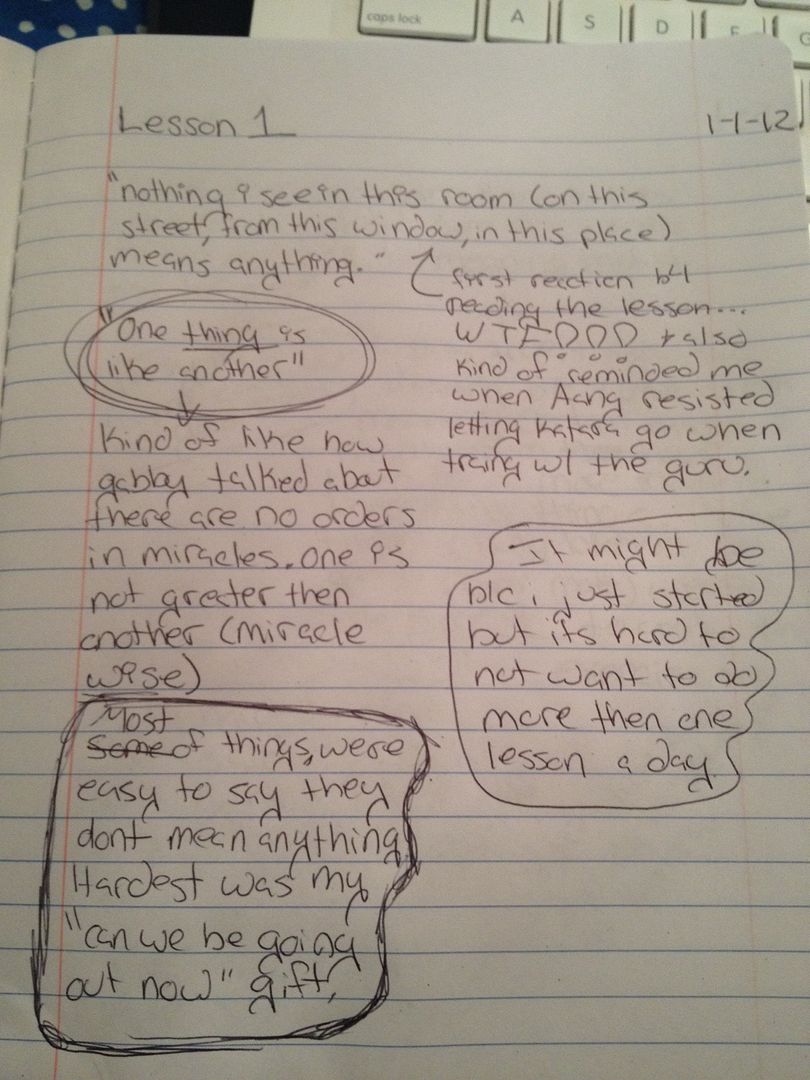 caps lock
A
S
D
F
G
Lesson 1
1-1-12
"nothing i see in this room (on this
street, from this window, in this place)
means anything."
first reaction b4
reading the lesson...
WTFDDD + also
kind of reminded me
when Aang resisted
letting Katara go when
traing w/ the guru.
"One thing is
like another"
Kind of like how
gabby talked about
there are no orders
in miracles. one is
not greater then
another (miracle
wise)
It might be
b/c i just started
but its hard to
not want to do
more then one
lesson a day
Most
Some of things, were
easy to say they
dont mean anything
Hardest was my
"can we be going
out now" gift,